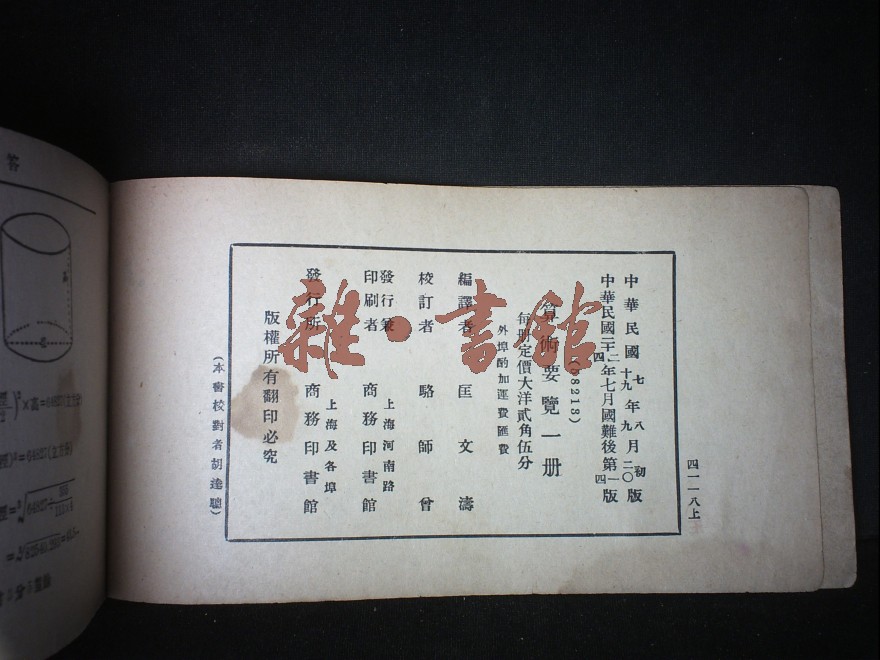 四一一八上
中華民國七年八月初版
十九年九月二〇版
中華民國二十二年七月國難後第一版
四 四
(58213)
算術要覽一册
每册定價大洋貳角伍分
外埠酌加運費匯費
編譯者 匡文濤
校訂者 駱師曾
發行兼印刷者 上海河南路 商務印書館
發行所 上海及各埠 商務印書館
版權所有翻印必究
(本書校對者胡達聰)
雜·書館
答